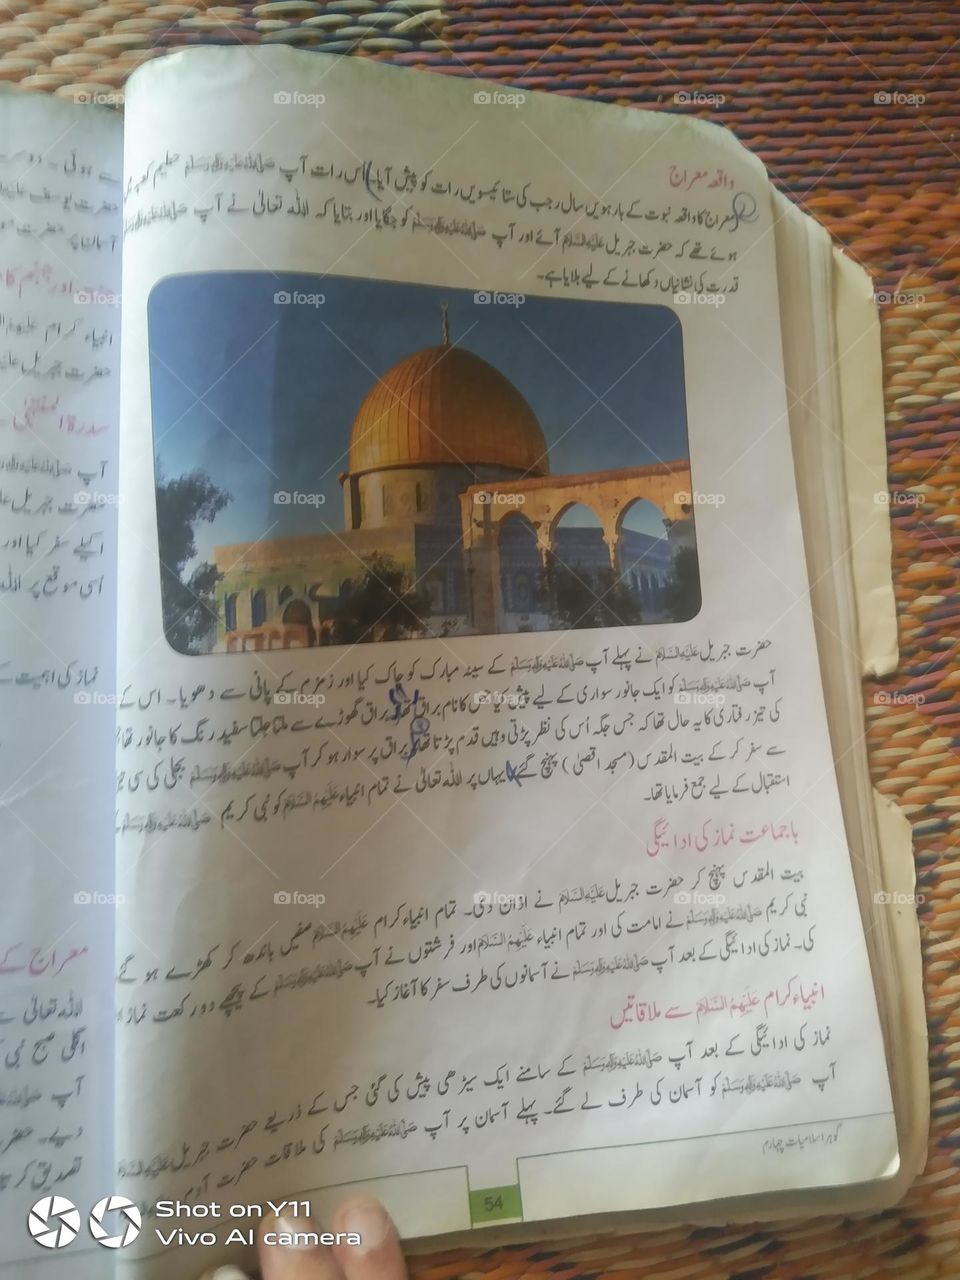 واقعہ معراج
معراج کا واقعہ نبوت کے بارہویں سال رجب کی ستائیسویں رات کو پیش آیا۔ اُس رات آپ ﷺ حطیم کعبہ
ہوئے تھے کہ حضرت جبریل عَلَيْهِ السَّلَام آئے اور آپ ﷺ کو جگایا اور بتایا کہ اللہ تعالیٰ نے آپ ﷺ
قدرت کی نشانیاں دکھانے کے لیے بلایا ہے۔
حضرت جبریل عَلَيْهِ السَّلَام نے پہلے آپ ﷺ کے سینہ مبارک کو چاک کیا اور زمزم کے پانی سے دھویا۔ اس کے
آپ ﷺ کو ایک جانور سواری کے لیے پیش کیا جس کا نام براق تھا۔ براق گھوڑے سے ملتا جلتا سفید رنگ کا جانور تھا
کی تیز رفتاری کا یہ حال تھا کہ جس جگہ اُس کی نظر پڑتی وہیں قدم پڑتا تھا۔ براق پر سوار ہو کر آپ ﷺ بجلی کی سی
سے سفر کر کے بیت المقدس (مسجد اقصیٰ) پہنچ گئے۔ یہاں پر اللہ تعالیٰ نے تمام انبیاء عَلَيْهِمُ السَّلَام کو نبی کریم ﷺ
استقبال کے لیے جمع فرمایا تھا۔
باجماعت نماز کی ادائیگی
بیت المقدس پہنچ کر حضرت جبریل عَلَيْهِ السَّلَام نے اذان دی۔ تمام انبیاء کرام عَلَيْهِمُ السَّلَام صفیں باندھ کر کھڑے ہو گئے
نبی کریم ﷺ نے امامت کی اور تمام انبیاء عَلَيْهِمُ السَّلَام اور فرشتوں نے آپ ﷺ کے پیچھے دو رکعت نماز
کی۔ نماز کی ادائیگی کے بعد آپ ﷺ نے آسمانوں کی طرف سفر کا آغاز کیا۔
انبیاء کرام عَلَيْهِمُ السَّلَام سے ملاقاتیں
نماز کی ادائیگی کے بعد آپ ﷺ کے سامنے ایک سیڑھی پیش کی گئی جس کے ذریعے حضرت جبریل عَلَيْهِ السَّلَام
آپ ﷺ کو آسمان کی طرف لے گئے۔ پہلے آسمان پر آپ ﷺ کی ملاقات حضرت آدم
گوہر اسلامیات چہارم
54
ہوئی۔ دوسرے
حضرت یوسف
حضرت
اور جہنم کا
انبیاء کرام
حضرت جبریل
سدرۃ المنتہیٰ
آپ ﷺ
حضرت جبریل
اکیلے سفر کیا اور
اسی موقع پر اللہ
نماز کی اہمیت
معراج کے
اللہ تعالیٰ
اگلی صبح نبی
آپ ﷺ
دیے۔ حضرت
تصدیق کر
Shot on Y11
Vivo AI camera
foap